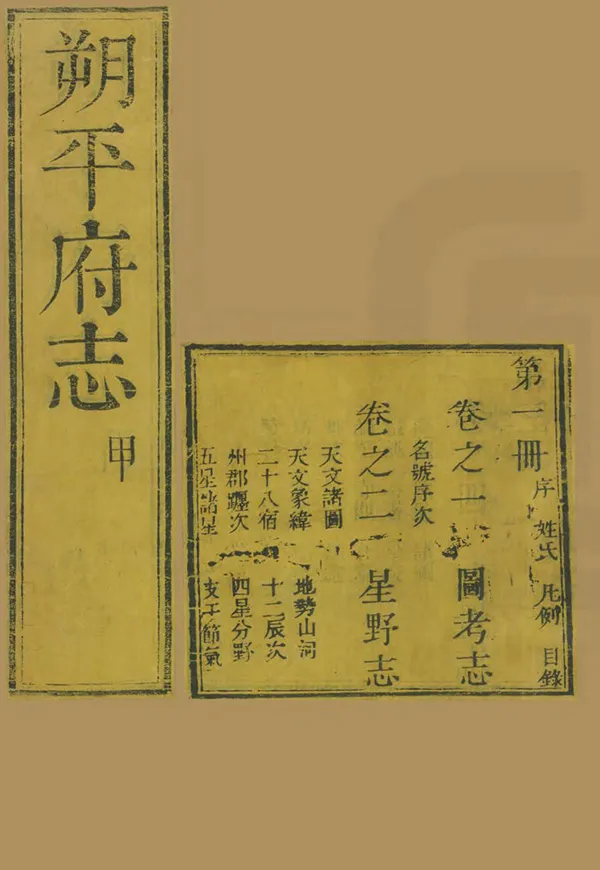 朔平府志 甲
第一冊 序 姓氏 凡例 目錄
卷之一 圖考志
名號序次
卷之二 星野志
天文諸圖
天文象緯 地勢山河
二十八宿 十二辰次
州郡躔次 四星分野
五星諸星 支干節氣